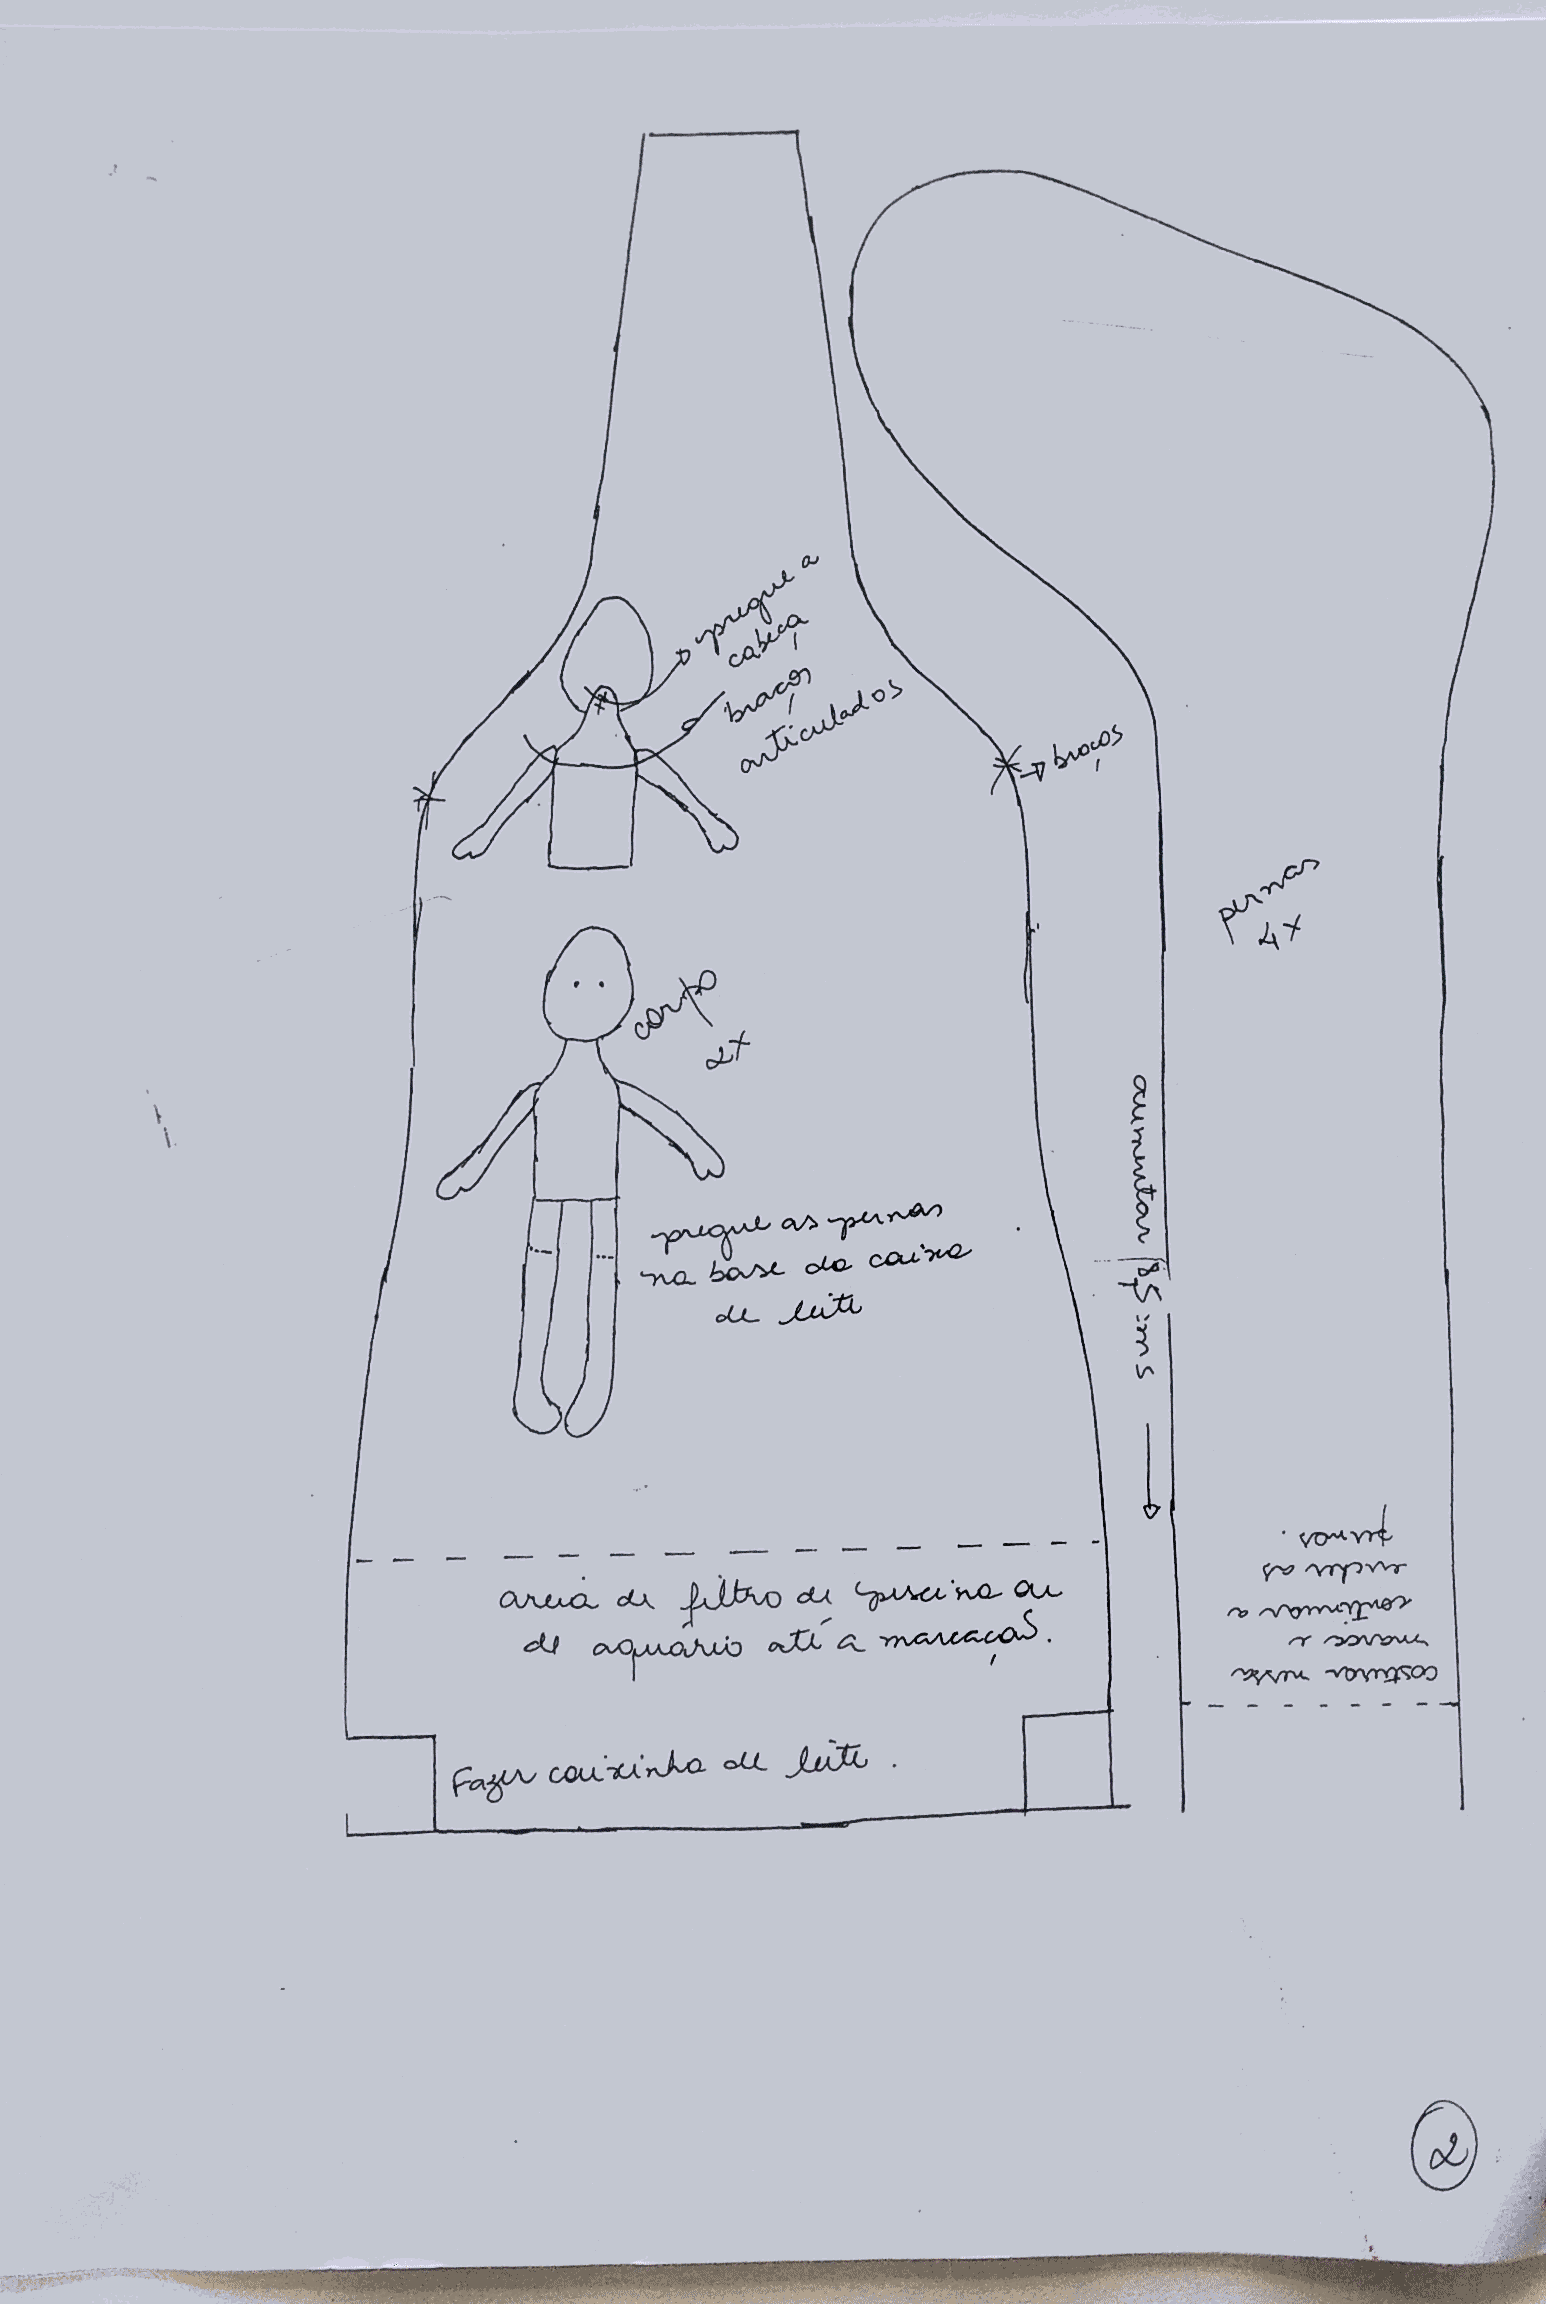 pregue a
cabeça
braços
articulados
braços
corpo
2x
pregue as pernas
na base da caixa
de leite
pernas
4x
aumentar 8,5 cms
areia de filtro de piscina ou
de aquário até a marcação.
costurar nessa
marca e
continuar a
encher as
pernas.
Fazer caixinha de leite.
2